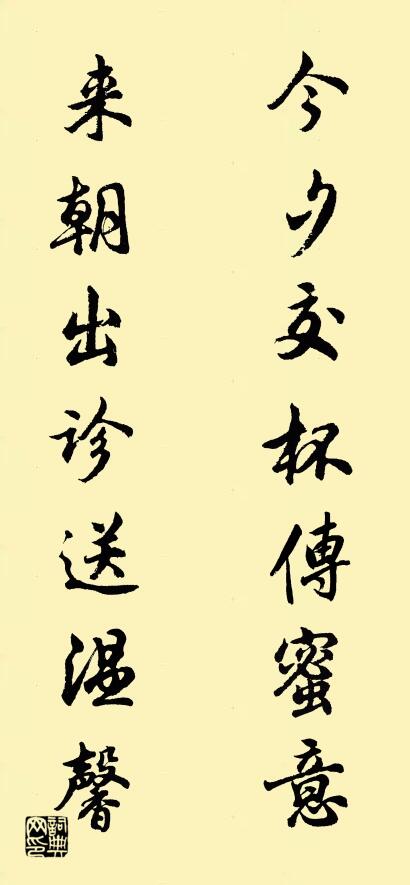 今夕交杯傳蜜意
来朝出診送温馨
詞典网印